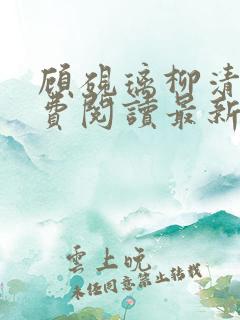 顾砚璃柳清
費閱讀最新
雲上晚
未经同意禁止转载